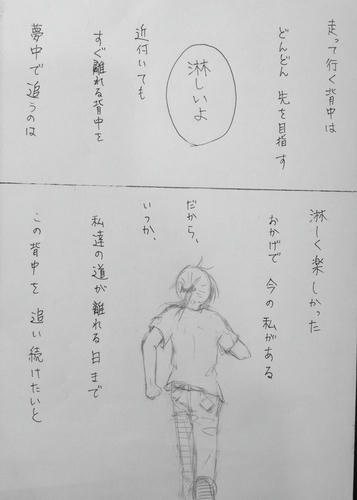 走って行く背中は
どんどん 先を目指す
淋しいよ
近付いても
すぐ離れる背中を
夢中で追うのは
淋しく楽しかった
おかげで 今の私がある
だから、
いつか、
私達の道が離れる日まで
この背中を 追い続けたいと